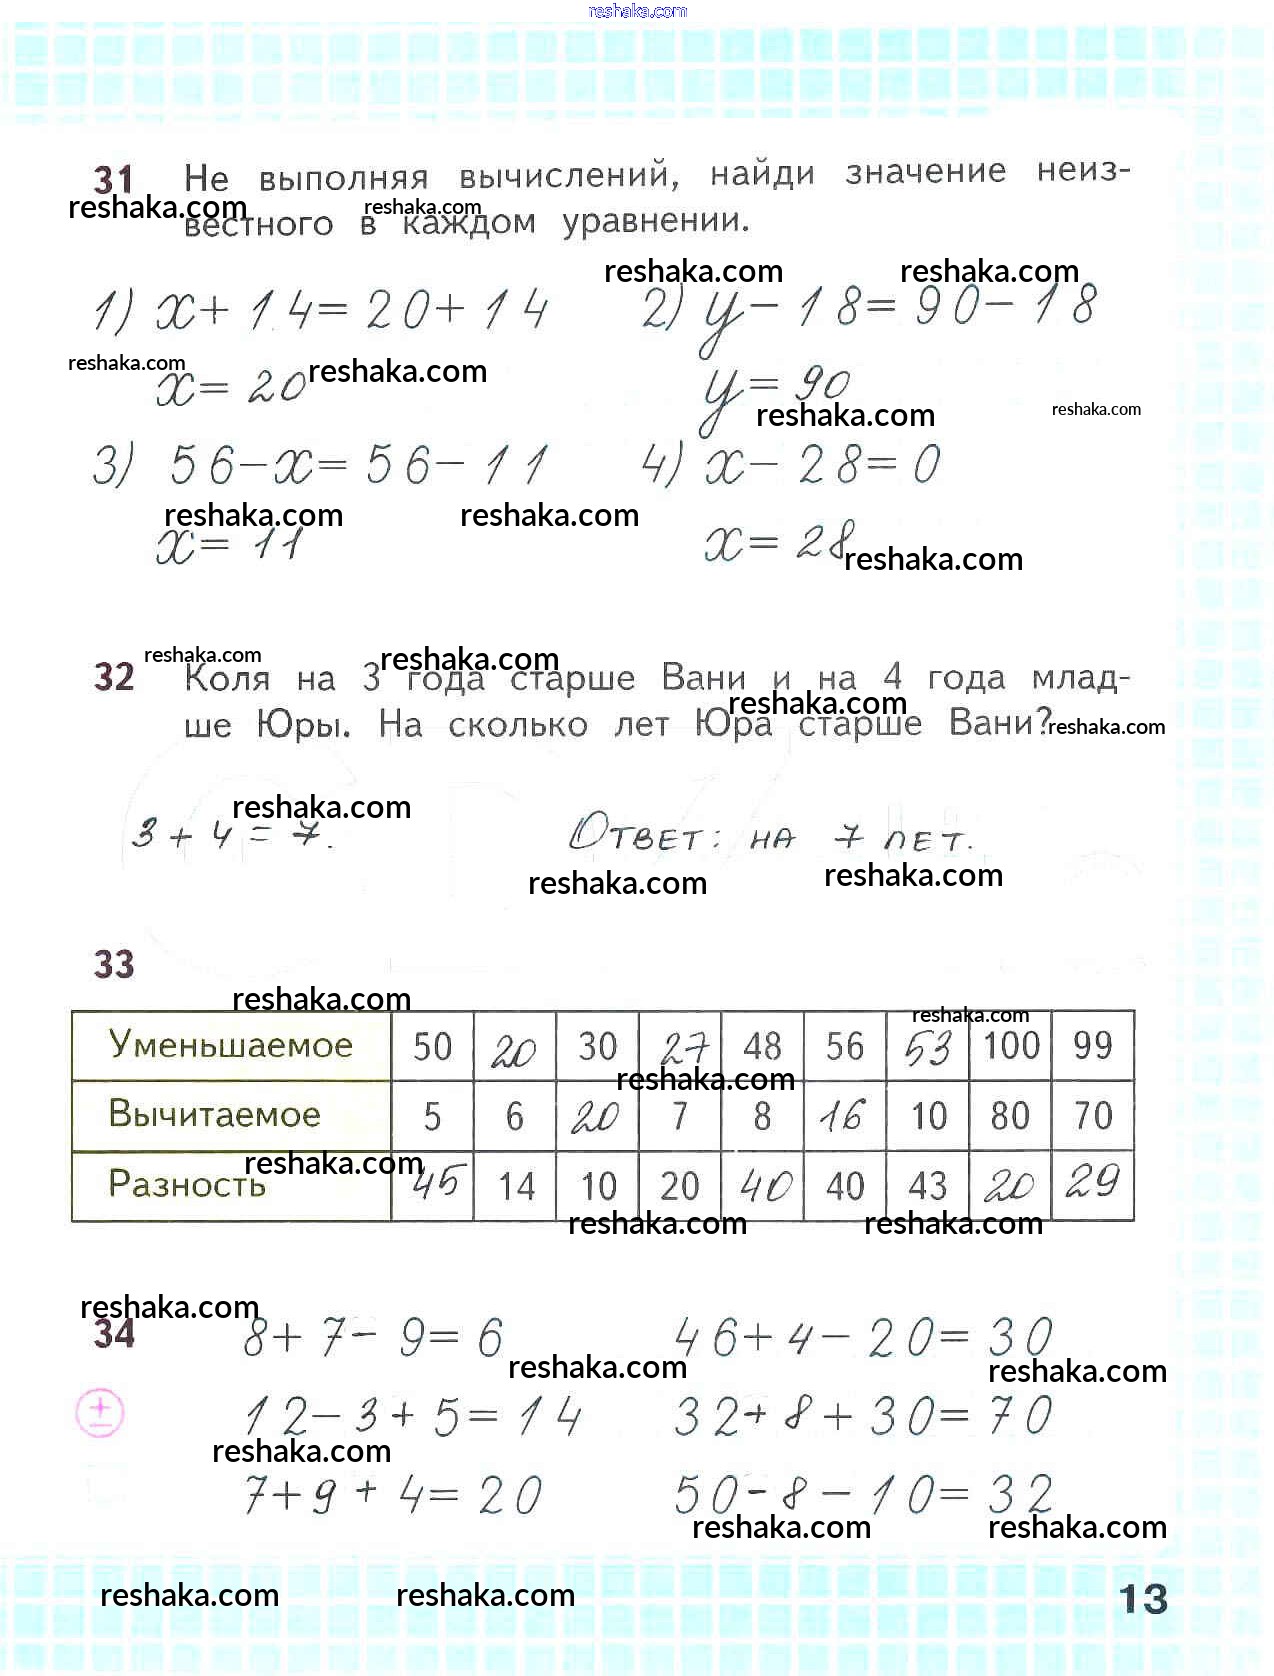 reshaka.com
31 Не выполняя вычислений, найди значение неиз-
reshaka.com reshaka.com
вестного в каждом уравнении.
reshaka.com reshaka.com
1) x + 14 = 20 + 14 2) y - 18 = 90 - 18
reshaka.com reshaka.com
x = 20 y = 90
reshaka.com reshaka.com
3) 56 - x = 56 - 11 4) x - 28 = 0
reshaka.com reshaka.com
x = 11 x = 28
reshaka.com
reshaka.com reshaka.com
32 Коля на 3 года старше Вани и на 4 года млад-
reshaka.com
ше Юры. На сколько лет Юра старше Вани?
reshaka.com
reshaka.com
3 + 4 = 7. Ответ: на 7 лет.
reshaka.com reshaka.com
33
reshaka.com reshaka.com
Уменьшаемое 50 20 30 27 48 56 53 100 99
reshaka.com
Вычитаемое 5 6 20 7 8 16 10 80 70
reshaka.com
Разность 45 14 10 20 40 40 43 20 29
reshaka.com reshaka.com
reshaka.com
34 8 + 7 - 9 = 6 46 + 4 - 20 = 30
reshaka.com reshaka.com
± 12 - 3 + 5 = 14 32 + 8 + 30 = 70
reshaka.com
7 + 9 + 4 = 20 50 - 8 - 10 = 32
reshaka.com reshaka.com
reshaka.com reshaka.com
13